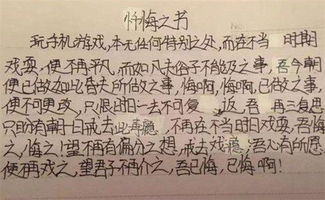 忏悔之书
玩手机游戏,本无任何特别之处,而在不当 时期
戏耍,便不再平凡,而如凡夫俗子不能及之事,吾今朝
便已做如此昏夫所做之事,悔啊,悔啊,已做之事,
便不可更改,只恨时日一去不可复 返,吾 再三复思
只盼有朝一日戒去此 ,不再在不当时日戏耍,吾悔
之,悔之!望不再有偏分之想,戒去戏瘾,吾心有所愿
便再戏之,望君子不介之,吾已悔,已悔啊!